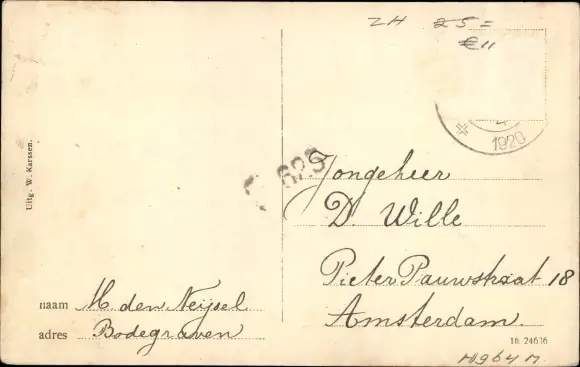 ZH 25=
€11
4
1920
Uitg. W. Karssen.
625
Jongeheer
D. Wille
Pieter Pauwstraat 18
Amsterdam.
naam M den Neijsel
adres Bodegraven
16 24616